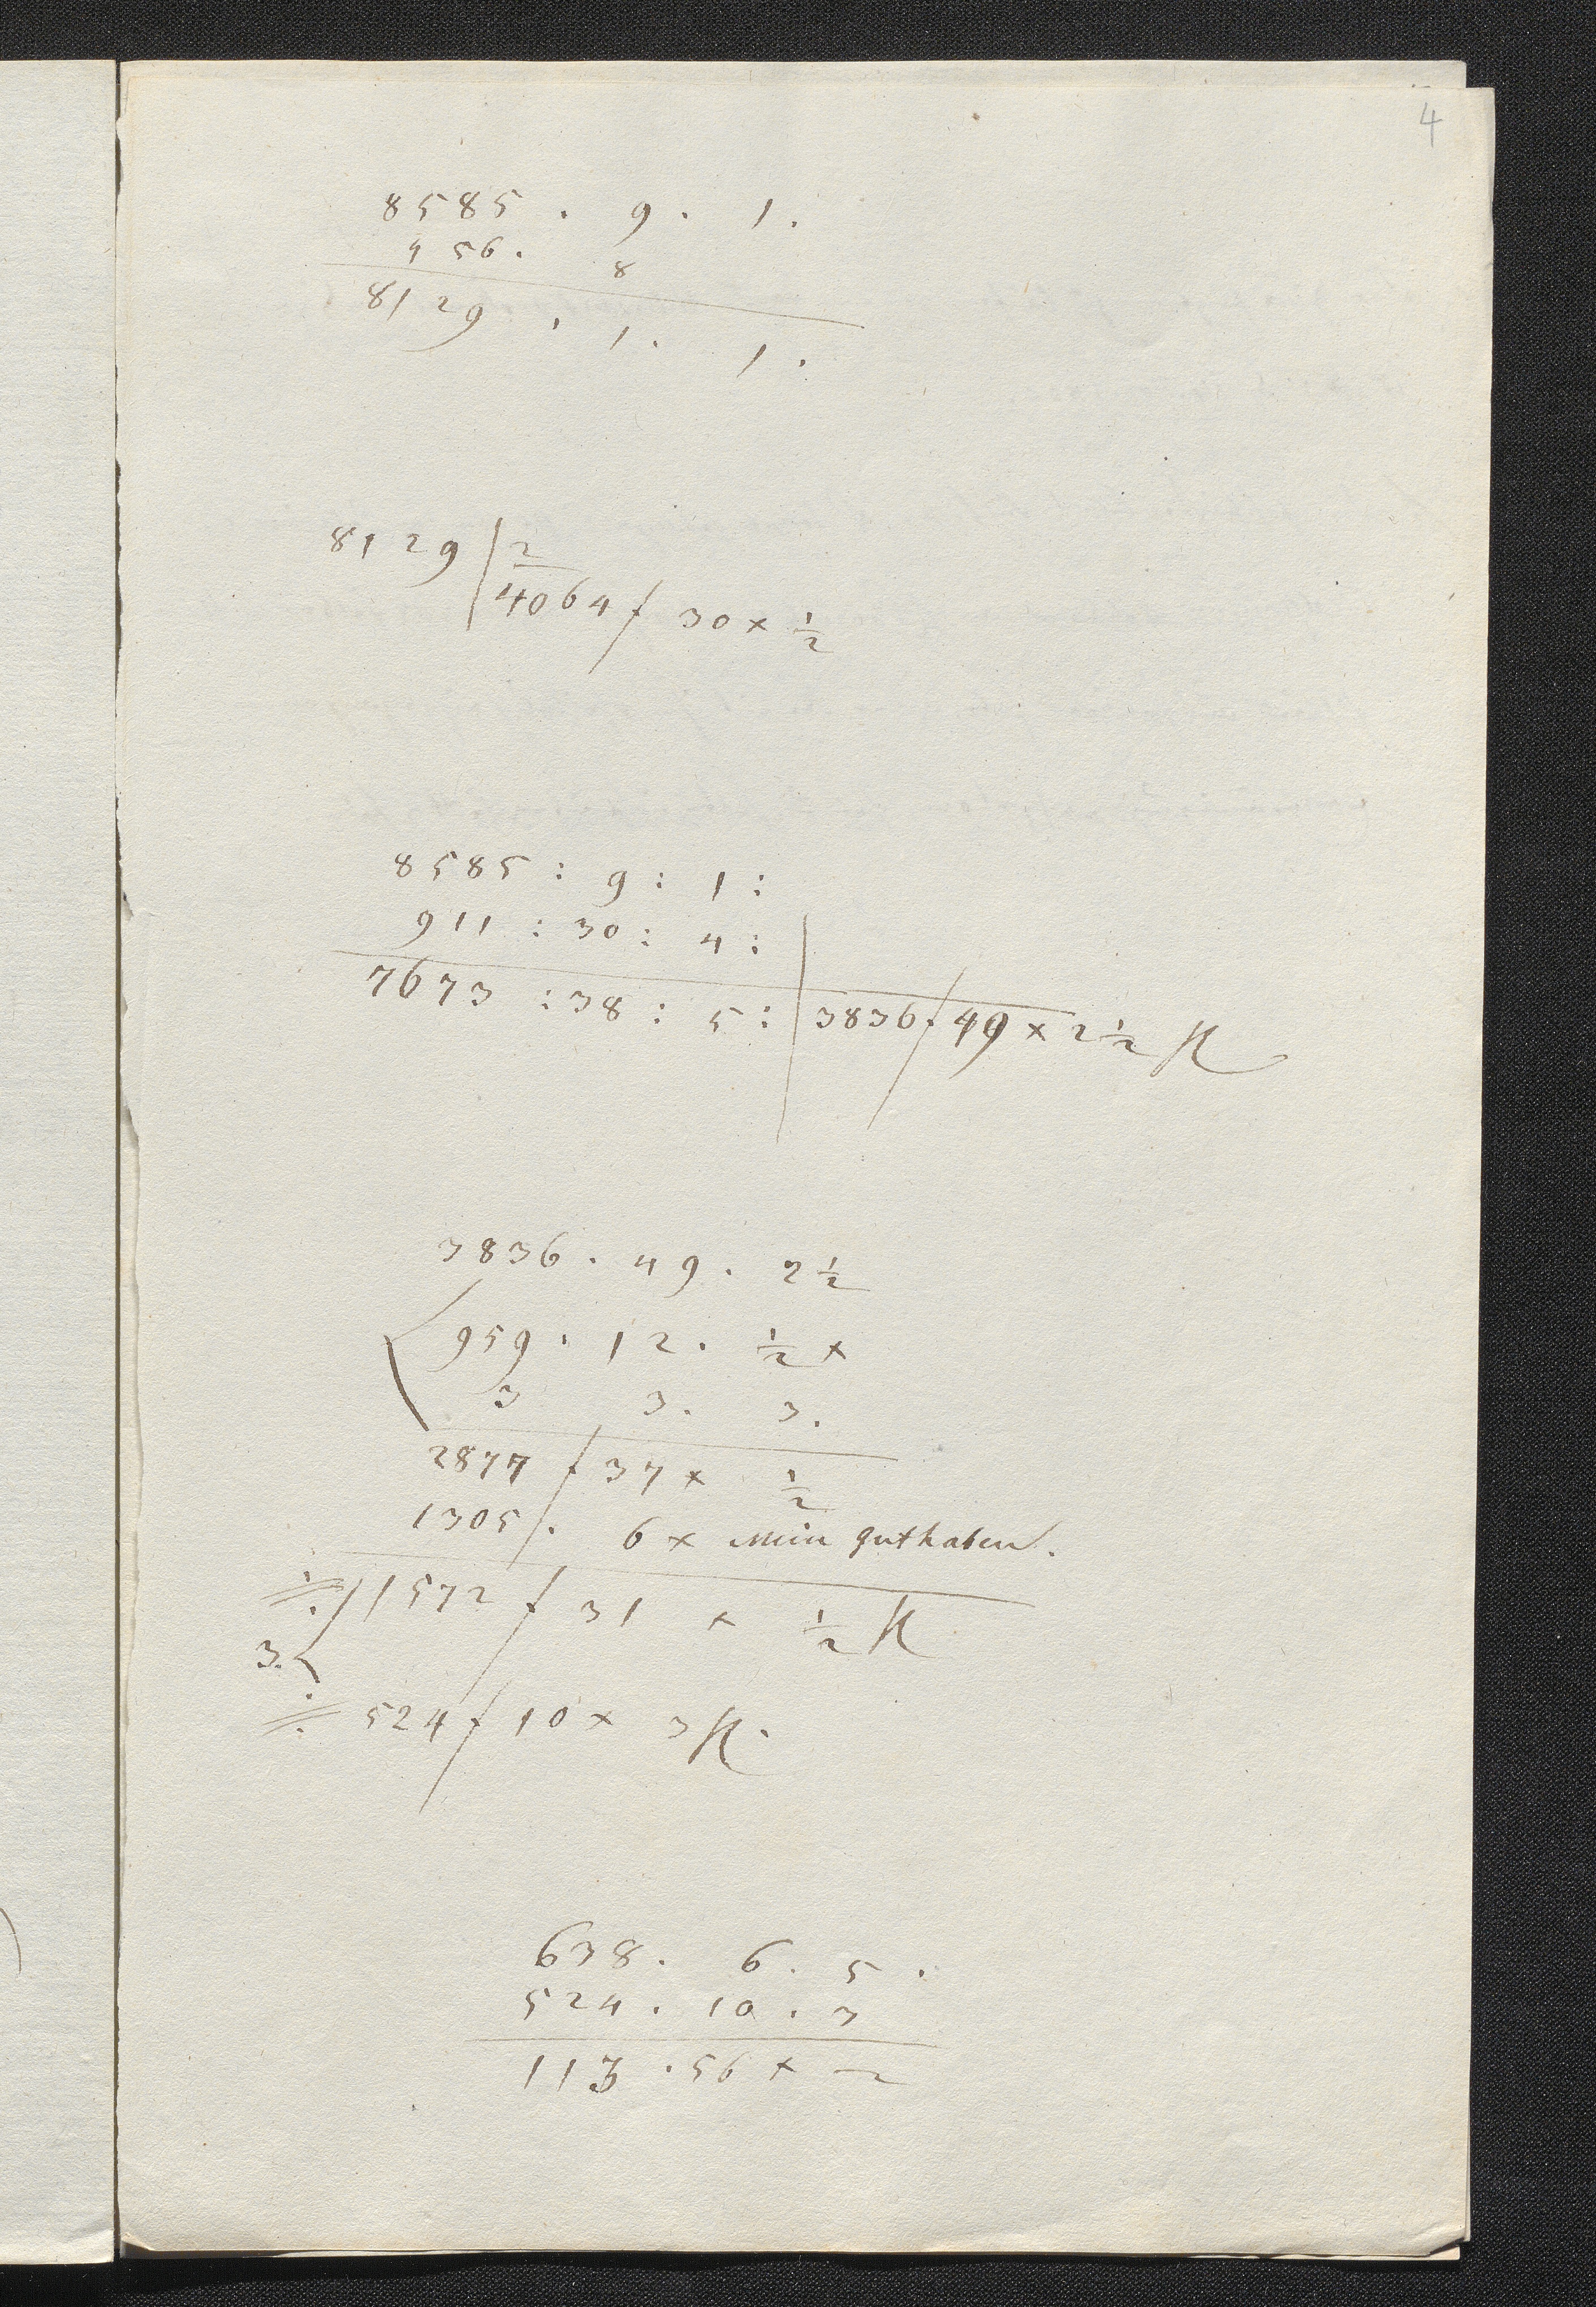 4
8585 . 9 . 1 .
456 . 8
8129 . 1 . 1 .
8129 | 2
4064 f 30 x ½
8585 : 9 : 1 :
911 : 30 : 4 :
7673 : 38 : 5 : | 3836 f 49 x 2½
3836 . 49 . 2½
959 . 12 . ½ x
3 3 . 3 .
2877 f 37 x ½
1305 f . 6 x mein guthaben .
1572 f 31 x ½
3.
524 f 10 x 3
638 . 6 . 5 .
524 . 10 . 3
113 . 56 x 2